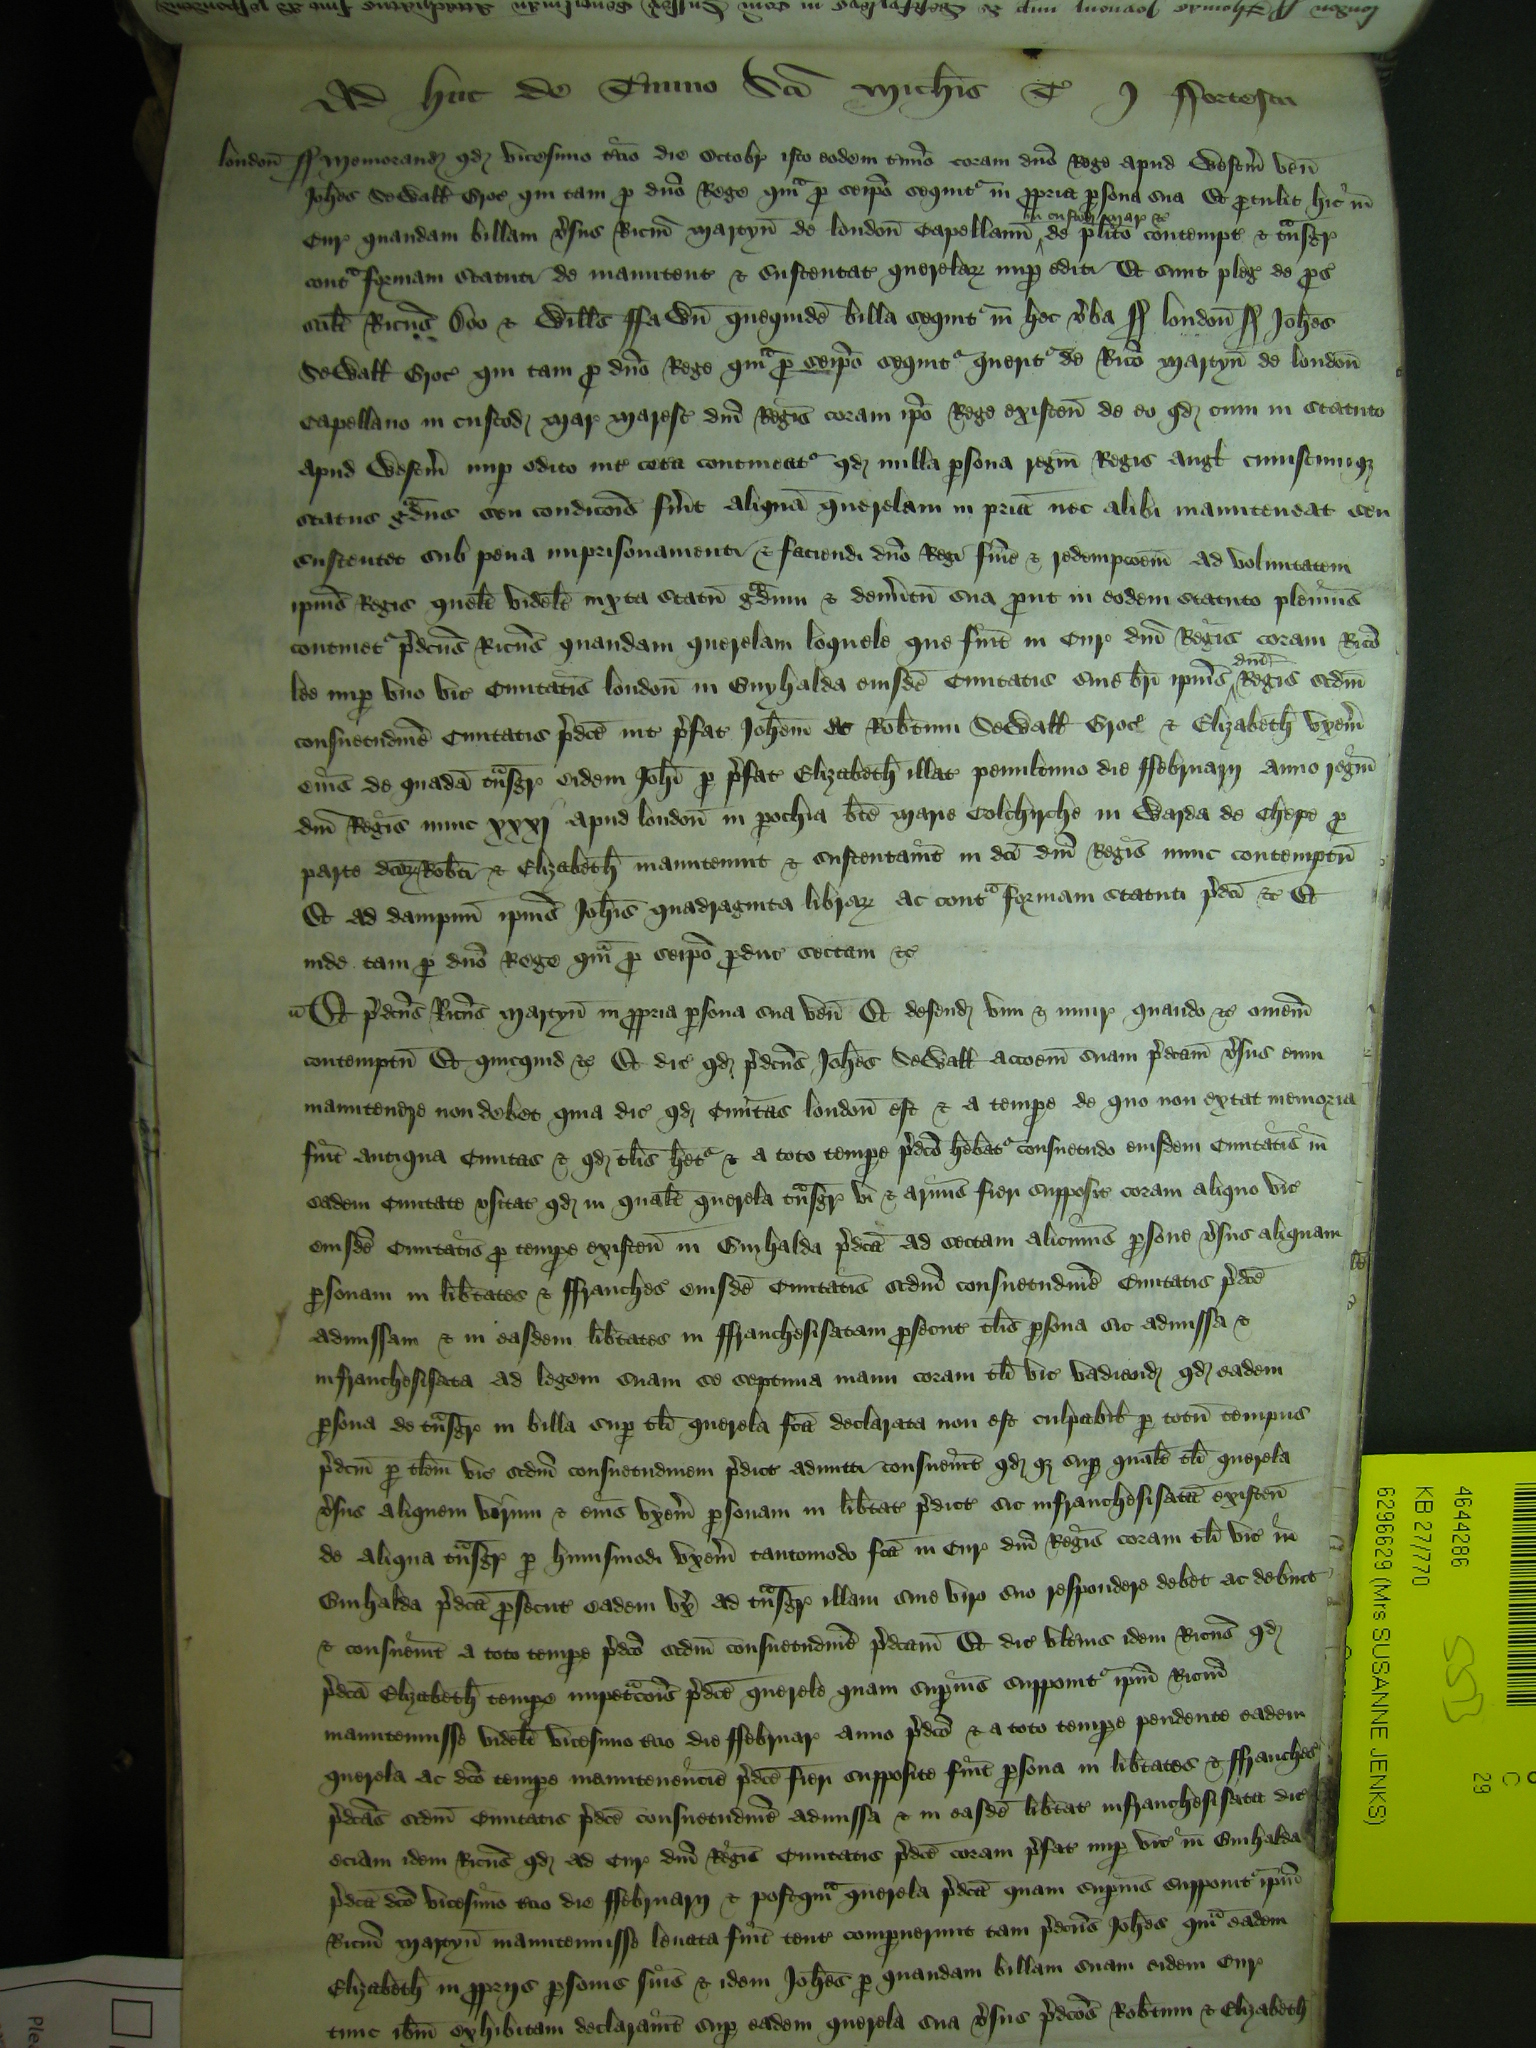 Ad huc de Termino Sci Michis T J ffortescu
london ss Memorand qd vicesimo tcio die Octobr isto eodem tmino coram dno Rege apud Westm ven
Johes Sewall Groc qui tam p dno Rege qm p seipo sequit in ppria psona sua Et ptulit hic in
Cur quandam billam vsus Ricm Martyn de london Capellanu in custod mar &c de plito contempt & tnsgr
cont formam statuti de manutent & sustentat querelar nup editi Et sunt pleg de ps
scilt Ricus Doo & Wills ffawn quequide billa sequit in hec vba ss london ss Johes
Sewall Groc qui tam p dno Rege qm p seipo sequit querit de Rico Martyn de london
Capellano in custod mar maresc dni Regis coram ipo Rege existen de eo qd cum in statuto
apud Westm nup edito int cetera contineat qd nulla psona regni Regis Angl cuiuscumq
status gdus seu condicois fuit aliqua querelam in pria nec alibi manuteneat seu
sustentet sub pena imprisonamenti & faciendi dno Regi fine & redempcoem ad voluntatem
ipius Regis quelt videlt iuxta statu gdum & demitu sua put in eodem statuto plenius
continet pdcus Ricus quandam querelam loquele que fuit in Cur dni Regis coram Rico
lee nup vno vic Ciuitatis london in Guyhalda eiusde Ciuitatis sine bri ipius dni Regis scdm
consuetudine Ciuitatis pdce int pfat Johem et Robtum Sewall Groc & Elizabeth vxem
eius de quada tnsgr eidem Johi p pfat Elizabeth illat penultimo die ffebruarij anno regni
dni Regis nunc xxxj apud london in pochia bte Marie Colchirche in Warda de Chepe p
parte dcor Robti & Elizabeth manutenuit & sustentauit in dci dni Regis nunc contemptu
Et ad dampnu ipius Johis quadraginta librar ac cont formam statuti pdci &c Et
inde tam p dno Rege qm p seipo pduc sectam &c
Et pdcus Ricus Martyn in ppria psona sua ven Et defend vim & iniur quando &c omem
contemptu Et quicquid &c Et dic qd pdcus Johes Sewall accoem suam pdcam vsus eum
manutenere non debet quia dic qd Ciuitas london est & a tempe de quo non extat memoria
fuit antiqua Ciuitas & qd tlis het & a toto tempe pdco hebat consuetudo eiusdem Ciuitatis in
eadem Ciuitate vsitat qd in qualt querela tnsgr vi & armis fieri supposit coram aliquo vic
eiusde Ciuitatis p tempe existen in Guihalda pdca ad sectam alicuius psone vsus aliquam
psonam in libtates & ffranches eiusde Ciuitatis scdm consuetudine Ciuitatis pdce
admissam & in easdem libtates in ffranchesisatam psecut tlis psona sic admissa &
infranchesisata ad legem suam se septima manu coram tli vic vadiand qd eadem
psona de tnsgr in billa sup tli querela fca declarata non est culpabil p totu tempus
pdcm p tlem vic scdm consuetudinem pdict admitti consueuit qd q sup qualt tli querela
vsus aliquem virum & eius vxem psonam in libtat pdict sic infranchesisata existen
de aliqua tnsgr p huiusmodi vxem tantomodo fca in Cur dni Regis coram tli vic in
Guihalda pdca psecut eadem vx ad tnsgr illam sine viro suo respondere debet ac debuit
& consueuit a toto tempe pdco scdm consuetudine pdcam Et dic vltius idem Ricus qd
pdca Elizabeth tempe impetcois pdce querele quam supius supponit ipm Ricm
manutenuisse videlt vicesimo tcio die ffebruar anno pdco & a toto tempe pendente eadem
querela ac dco tempe manutenencie pdce fieri supposite fuit psona in libtates & ffranches
pdcas scdm Ciuitatis pdce consuetudine admissa & in easde libtat infranchesisata dic
eciam idem Ricus qd ad Cur dni Regis Ciuitatis pdce coram pfat nup vic in Guihalda
pdca dco vicesimo tcio die ffebruarij & postqm querela pdca quam supius supponit ipm
Ricm Martyn manutenuisse leuata fuit tent compuerunt tam pdcus Johes qm eadem
Elizabeth in pprijs psonis suis & idem Johes p quandam billam suam eidem Cur
tunc ibm exhibitam declarauit sup eadem querela sua vsus pdcos Robtum & Elizabeth
4644286
KB 27/770
6296629 (Mrs SUSANNE JENKS)
SSD
C
29
Plea